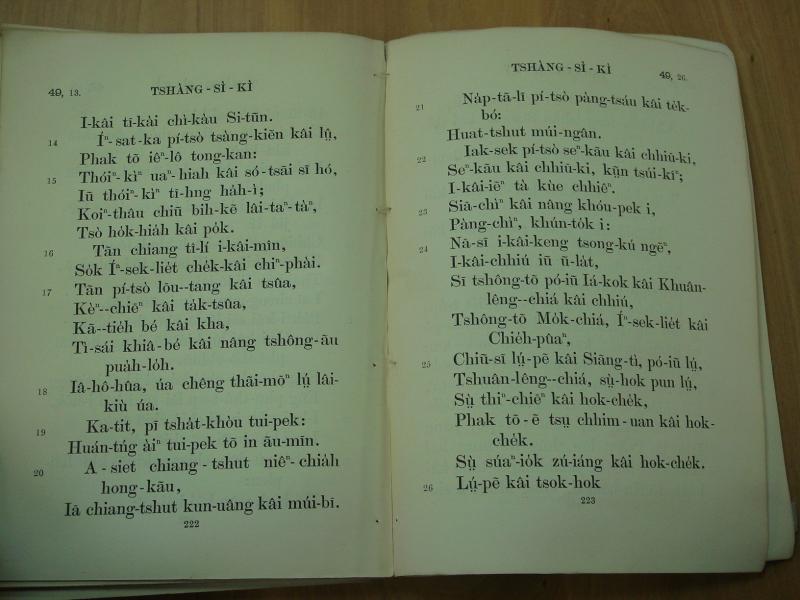 49, 13.
TSHÀNG - SÌ - KÌ
I-kâi tī-kài chì-kàu Si-tūn.
14 Íⁿ-sat-ka pí-tsò tsàng-kiēn kâi lṳ̂,
Phak tō iêⁿ-lô tong-kan:
15 Thóiⁿ-kìⁿ uaⁿ-hiah kâi só-tsāi sĭ hó,
Iū thóiⁿ-kìⁿ tī-hng ha̍h-ì;
Koiⁿ-thâu chiū bih-kē lâi-taⁿ-tàⁿ,
Tsò ho̍k-hia̍h kâi po̍k.
16 Tān chiang tī-lí i-kâi-mîn,
So̍k Íⁿ-sek-lie̍t che̍k-kâi chiⁿ-phài.
17 Tān pí-tsò lōu--tang kâi tsûa,
Kèⁿ--chiēⁿ kâi ta̍k-tsûa,
Kā--tie̍h bé kâi kha,
Tì-sái khiâ-bé kâi nâng tshông-āu
pua̍h-lo̍h.
18 Iâ-hô-hûa, úa chêng thāi-mōⁿ lṳ́ lâi-
kiù úa.
19 Ka-tit, pī tsha̍t-khòu tui-pek:
Huán-tńg àiⁿ tui-pek tō in āu-mīn.
20 A - siet chiang - tshut niêⁿ - chia̍h
hong-kāu,
Iâ chiang-tshut kun-uâng kâi múi-bī.
222
TSHÀNG - SÌ - KÌ
49, 26.
21 Na̍p-tā-lī pí-tsò pàng-tsáu kâi te̍k-
bó:
Huat-tshut múi-ngân.
22 Iak-sek pí-tsò seⁿ-kāu kâi chhiū-ki,
Seⁿ-kāu kâi chhiū-ki, kṳ̄n tsúi-kîⁿ;
I-kâi-iēⁿ tà kùe chhiêⁿ.
23 Siā-chìⁿ kâi nâng khóu-pek i,
Pàng-chìⁿ, khún-to̍k i:
24 Nā-sī i-kâi-keng tsong-kú ngēⁿ,
I-kâi-chhiú iū ū-la̍t,
Sĭ tshông-tō pó-iū Iá-kok kâi Khuân-
lêng--chiá kâi chhiú,
Tshông-tō Mo̍k-chiá, Íⁿ-sek-lie̍t kâi
Chie̍h-pûaⁿ,
25 Chiū-sĭ lṳ́-pē kâi Siāng-tì, pó-iū lṳ́,
Tshuân-lêng--chiá, sṳ̀-hok pun lṳ́,
Sṳ̀ thiⁿ-chiēⁿ kâi hok-che̍k,
Phak tō - ē tsṳ chhim - uan kâi hok-
che̍k.
Sṳ̀ súaⁿ-io̍k zú-iáng kâi hok-che̍k.
26 Lṳ́-pē kâi tsok-hok
223